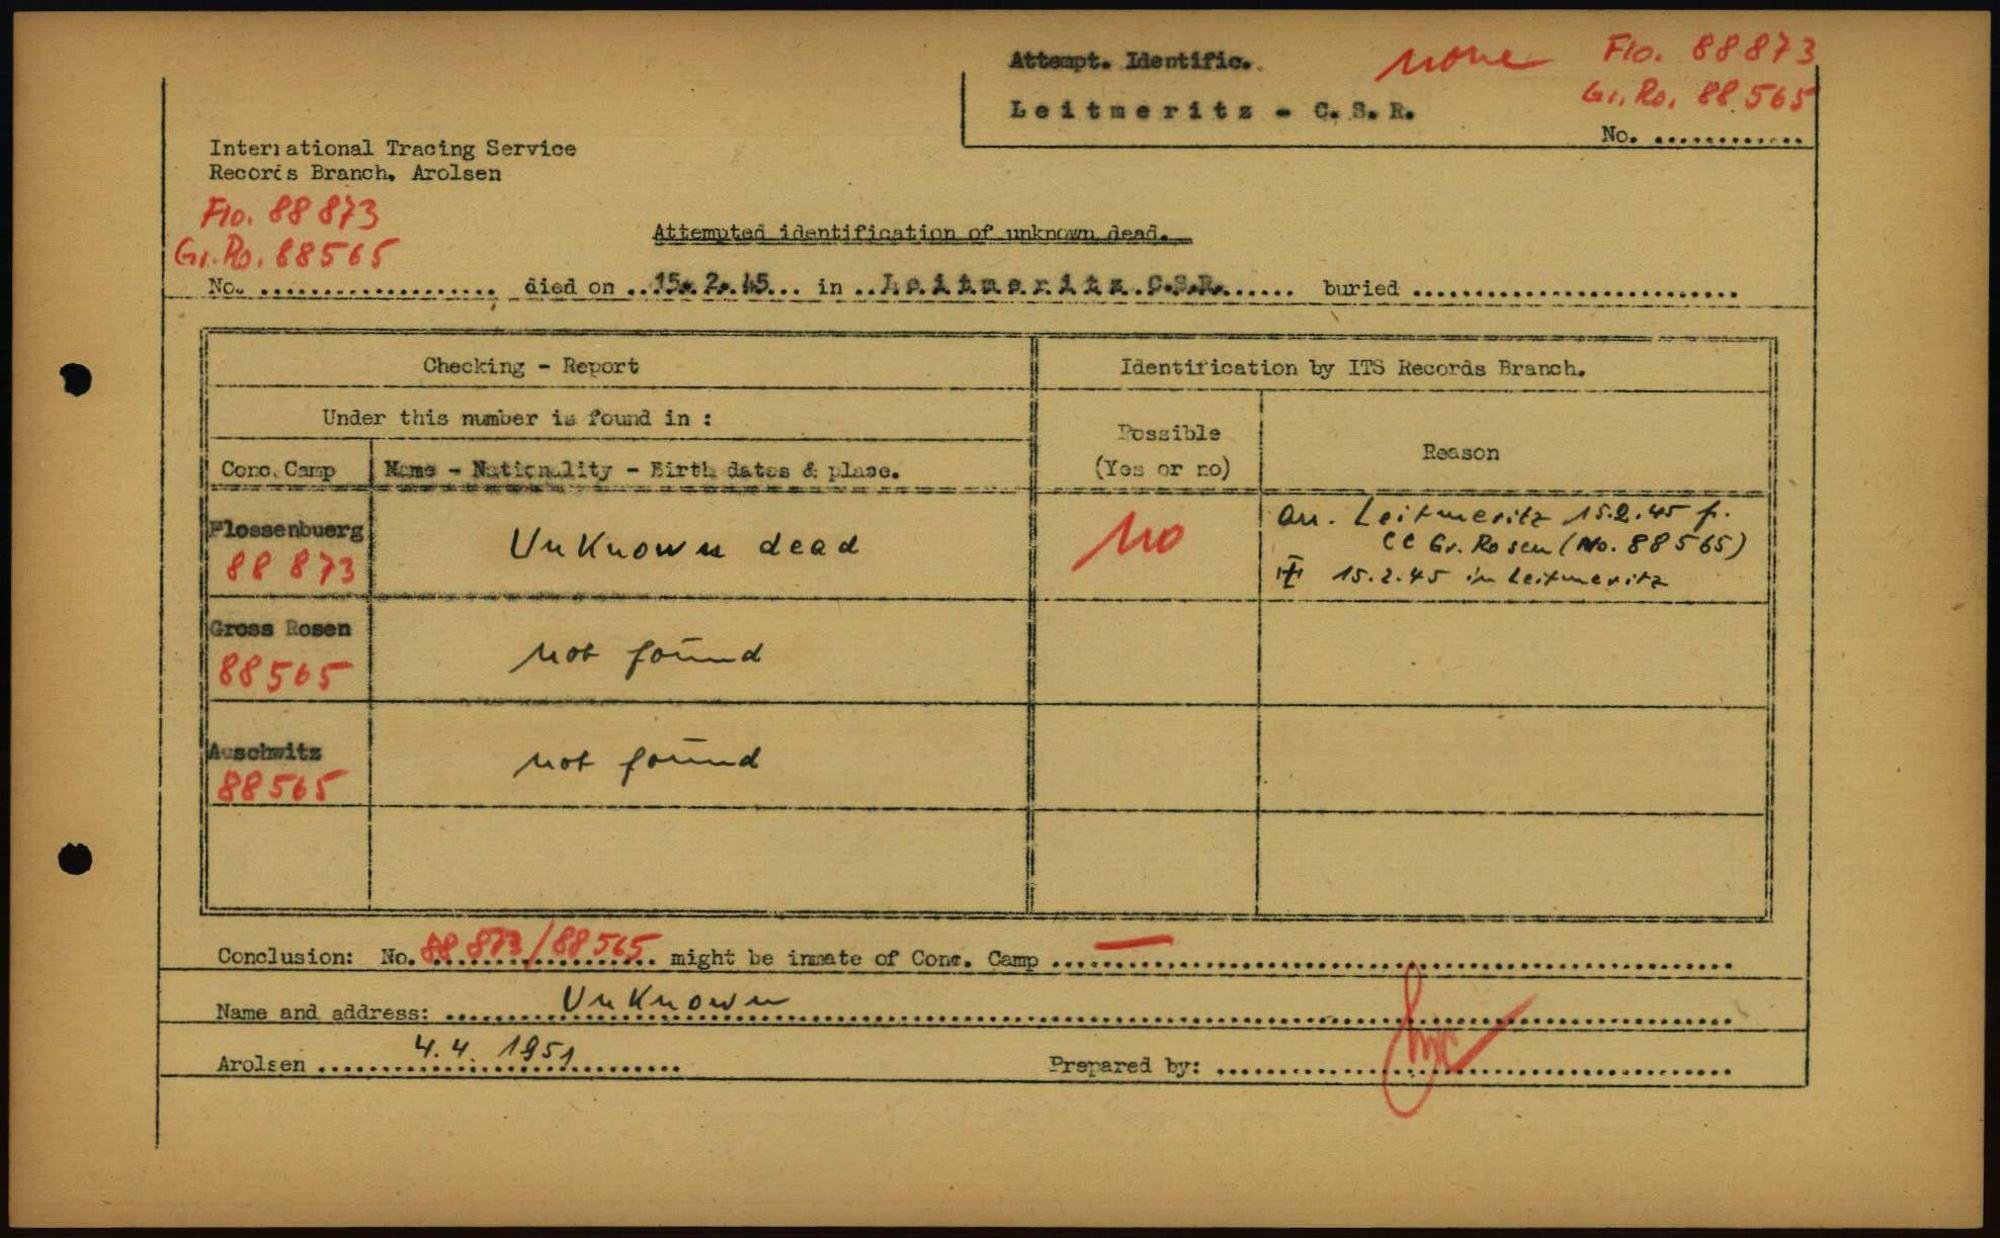 Attempt. Identific. none Flo. 88873
Leitmeritz - C.S.R. Gr. Ro. 88565
No. ............
International Tracing Service
Records Branch, Arolsen
Flo. 88873
Gr. Ro. 88565
Attempted identification of unknown dead.
No. ................... died on ..15. 2. 45... in ..Leitmeritz C.S.R....... buried ...........................
Checking - Report
Identification by ITS Records Branch.
Under this number is found in :
Possible
(Yes or no)
Reason
Conc. Camp
Name - Nationality - Birth dates & place.
Flossenbuerg
88 873
Unknown dead
no
arr. Leitmeritz 15.2.45 f.
CC Gr. Rosen (No. 88565)
15.2.45 in Leitmeritz
Gross Rosen
88565
not found
Auschwitz
88565
not found
Conclusion: No. 88 873/88565 might be inmate of Conc. Camp —
Name and address: Unknown
Arolsen 4.4. 1951 Prepared by: